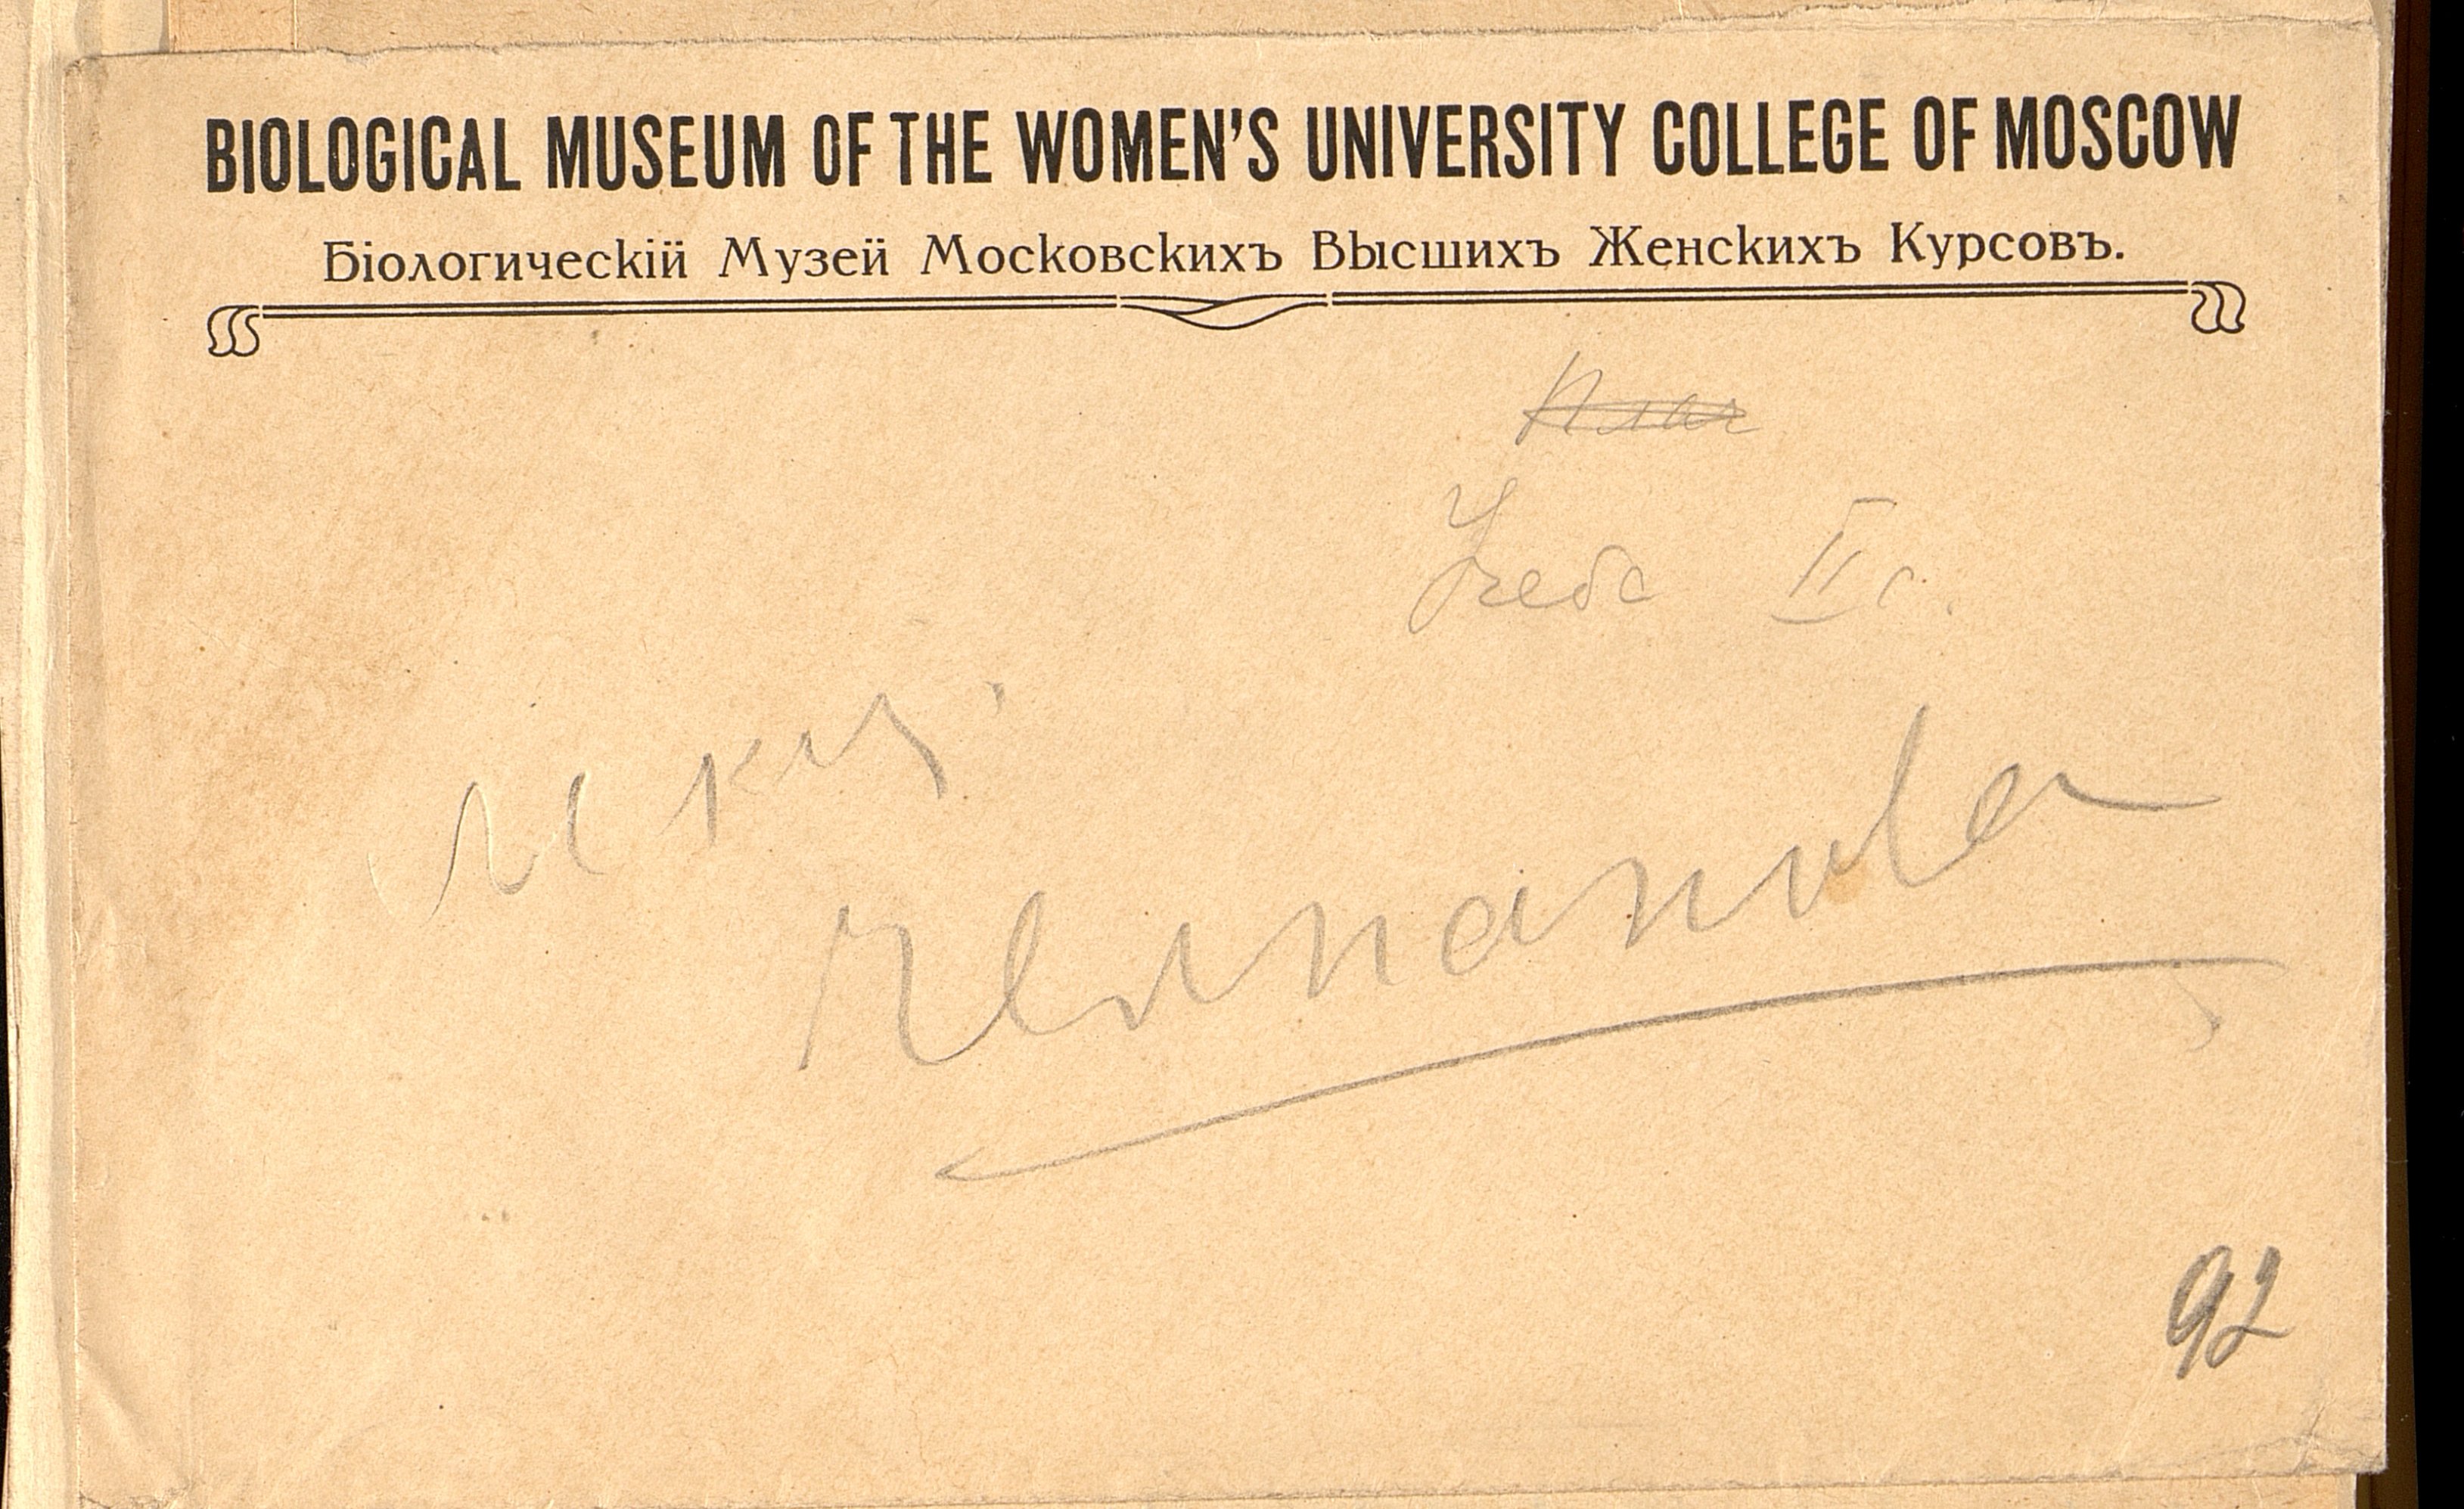 BIOLOGICAL MUSEUM OF THE WOMEN'S UNIVERSITY COLLEGE OF MOSCOW
Біологическій Музей Московскихъ Высшихъ Женскихъ Курсовъ.
Учеба II с.
Челпанова
92